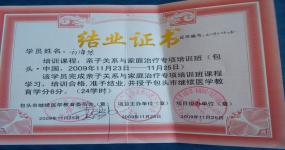 结业证书
学员姓名
培训课程:亲子关系与家庭治疗专项培训班(包
头·中国,2009年11月23日——11月25日)
该学员完成亲子关系与家庭治疗专项培训班课程
学习,培训合格,准予结业,并授予包头市继续医学教
育学分6分。(24学时)
包头市继续医学教育委员会(章) 项目主办单位(章) 项目承办单位(章)
2009年11月25日 2009年11月25日 2009年11月25日